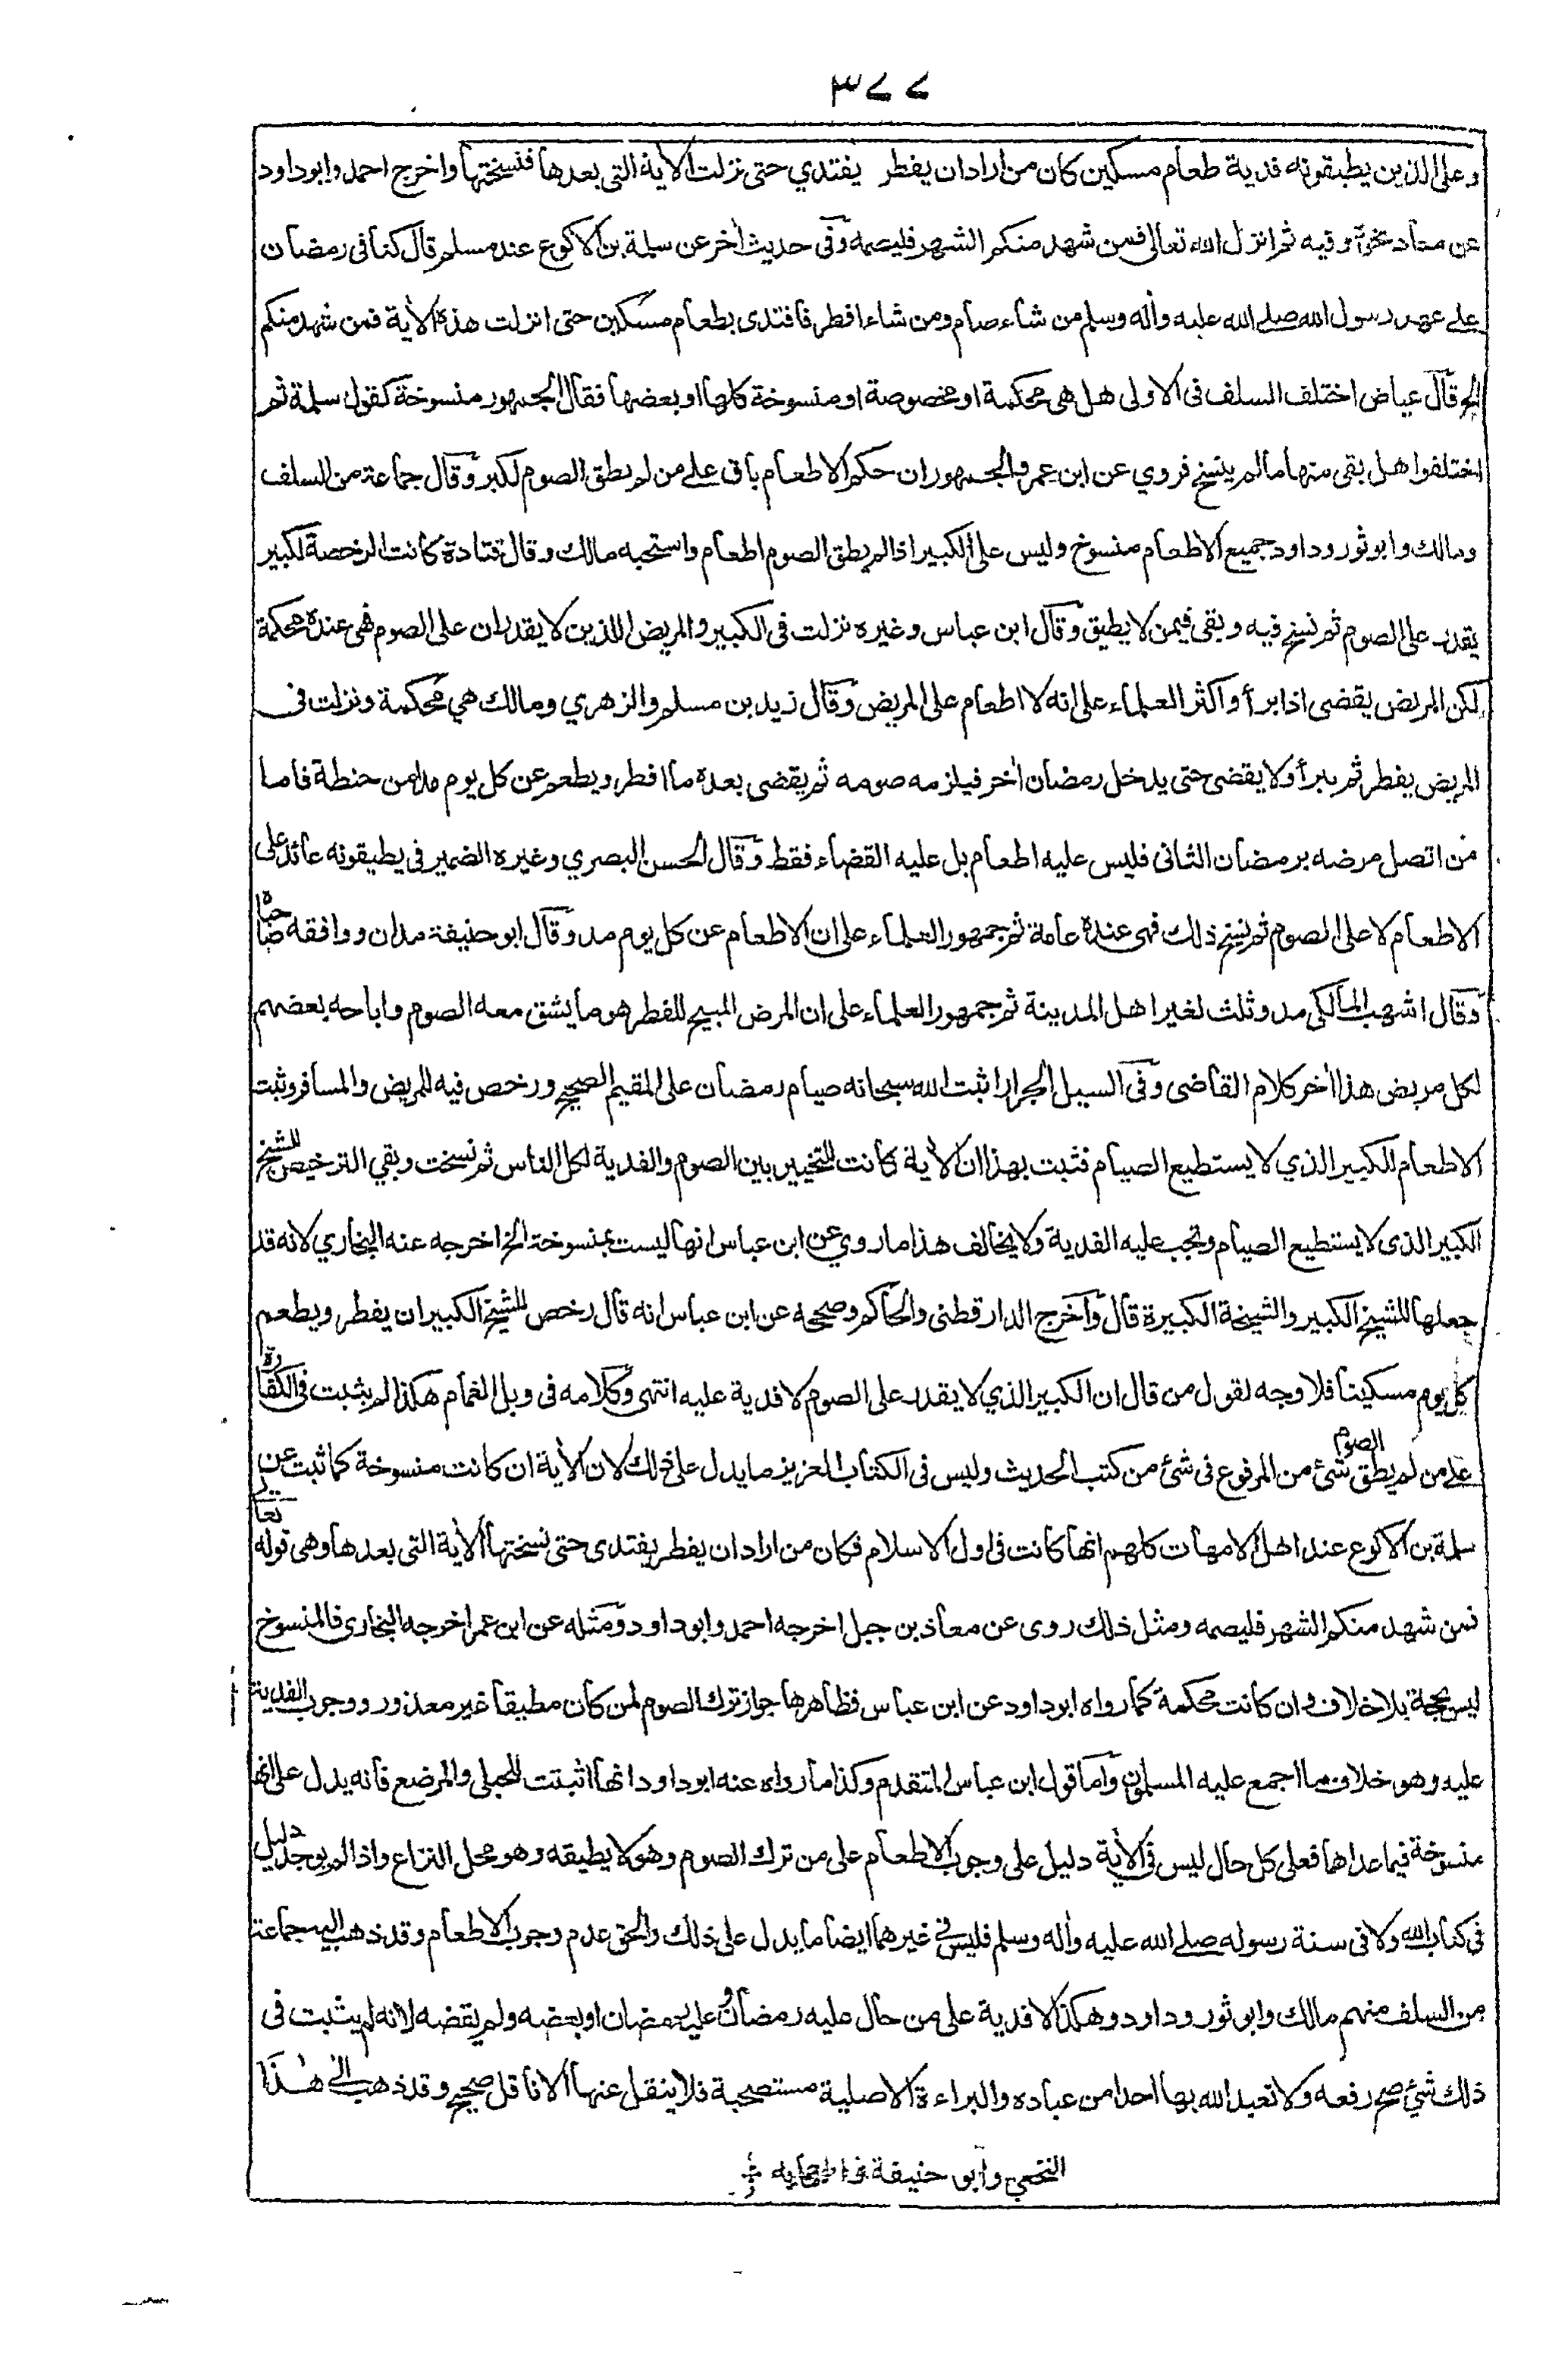 ٣٧٧
وعلى الذين يطيقونه فدية طعام مسكين كان من اراد ان يفطر يفتدي حتى نزلت الآية التى بعدها فنسختها واخرج احمد وابو داود
عن معاذ نحوه وفيه ثم انزل الله تعالى فمن شهد منكم الشهر فليصمه وفى حديث آخر عن سلمة بن الاكوع عند مسلم قال كنا فى رمضان
على عهد رسول الله صلے الله عليه وآله وسلم من شاء صام ومن شاء افطر فافتدى بطعام مسكين حتى انزلت هذه الآية فمن شهد منكم
الخ قال عياض اختلف السلف فى الاولى هل هى محكمة او مخصوصة او منسوخة كلها او بعضها فقال الجمهور منسوخة كقول سلمة ثم
اختلفوا هل بقى منها ما لم ينسخ فروي عن ابن عمر والجمهور ان حكم الاطعام باق على من لم يطق الصوم لكبر وقال جماعة من السلف
ومالك وابو ثور وداود جميع الاطعام منسوخ وليس على الكبير اذا لم يطق الصوم اطعام واستحبه مالك وقال قتادة كانت الرخصة لكبير
يقدر على الصوم ثم نسخ فيه وبقى فيمن لا يطيق وقال ابن عباس وغيره نزلت فى الكبير والمريض اللذين لا يقدران على الصوم فهى عنده محكمة
لكن المريض يقضى اذا برأ واكثر العلماء على انه لا اطعام على المريض وقال زيد بن مسلم والزهري ومالك هي محكمة ونزلت فى
المريض يفطر ثم يبرأ ولا يقضى حتى يدخل رمضان آخر فيلزمه صومه ثم يقضى بعده ما افطر ويطعم عن كل يوم مدا من حنطة فاما
من اتصل مرضه برمضان الثانى فليس عليه اطعام بل عليه القضاء فقط وقال الحسن البصري وغيره الضمير فى يطيقونه عائد على
الاطعام لا على الصوم ثم نسخ ذلك فهى عنده عامة ثم جمهور العلماء على ان الاطعام عن كل يوم مد وقال ابو حنيفة مدان ووافقه صاحباه
وقال اشهب المالكى مد وثلث لغير اهل المدينة ثم جمهور العلماء على ان المرض المبيح للفطر هو ما يشق معه الصوم واباحه بعضهم
لكل مريض هذا آخر كلام القاضى وفى السيل الجرار اثبت الله سبحانه صيام رمضان على المقيم الصحيح ورخص فيه للمريض والمسافر وثبت
الاطعام للكبير الذي لا يستطيع الصيام فثبت بهذا ان الآية كانت للتخيير بين الصوم والفدية لكل الناس ثم نسخت وبقي الترخيص للشيخ
الكبير الذى لا يستطيع الصيام وتجب عليه الفدية ولا يخالف هذا ما روي عن ابن عباس انها ليست بمنسوخة الخ اخرجه عنه البخاري لانه قد
جعلها للشيخ الكبير والشيخة الكبيرة قال وأخرج الدارقطنى والحاكم وصححه عن ابن عباس انه قال رخص للشيخ الكبير ان يفطر ويطعم
كل يوم مسكينا فلا وجه لقول من قال ان الكبير الذي لا يقدر على الصوم لا فدية عليه انتهى وكلامه فى وبل الغمام هكذا لم يثبت فى الكفارة
على من لم يطق الصوم شئ من المرفوع فى شئ من كتب الحديث وليس فى الكتاب العزيز ما يدل على ذلك لان الآية ان كانت منسوخة كما ثبت عن
سلمة بن الاكوع عند اهل الامهات كلهم انها كانت فى اول الاسلام فكان من اراد ان يفطر يفتدى حتى نسختها الآية التى بعدها وهى قوله تعا
فمن شهد منكم الشهر فليصمه ومثل ذلك روى عن معاذ بن جبل اخرجه احمد وابو داود ومثله عن ابن عمر اخرجه البخارى فالمنسوخ
ليس بحجة بلا خلاف وان كانت محكمة كما رواه ابو داود عن ابن عباس فظاهرها جواز ترك الصوم لمن كان مطيقا غير معذور ووجوب الفدية
عليه وهو خلاف ما اجمع عليه المسلمون وأما قول ابن عباس المتقدم وكذا ما رواه عنه ابو داود انها اثبتت للحبلى والمرضع فانه يدل على انها
منسوخة فيما عداها فعلى كل حال ليس فى الآية دليل على وجوب الاطعام على من ترك الصوم وهو لا يطيقه وهو محل النزاع واذا لم يوجد دليل
فى كتاب الله ولا فى سنة رسوله صلے الله عليه وآله وسلم فليس فى غيرهما ايضا ما يدل على ذلك والحق عدم وجوب الاطعام وقد ذهب اليه جماعة
من السلف منهم مالك وابو ثور وداود وهكذا لا فدية على من حال عليه رمضان وعليه رمضان او بعضه ولم يقضه لانه لم يثبت فى
ذلك شئ صح رفعه ولا تعبد الله بها احدا من عباده والبراءة الاصلية مستصحبة فلا ينقل عنها الا ناقل صحيح وقد ذهب الى هذا
النخعي وابو حنيفة واصحابه